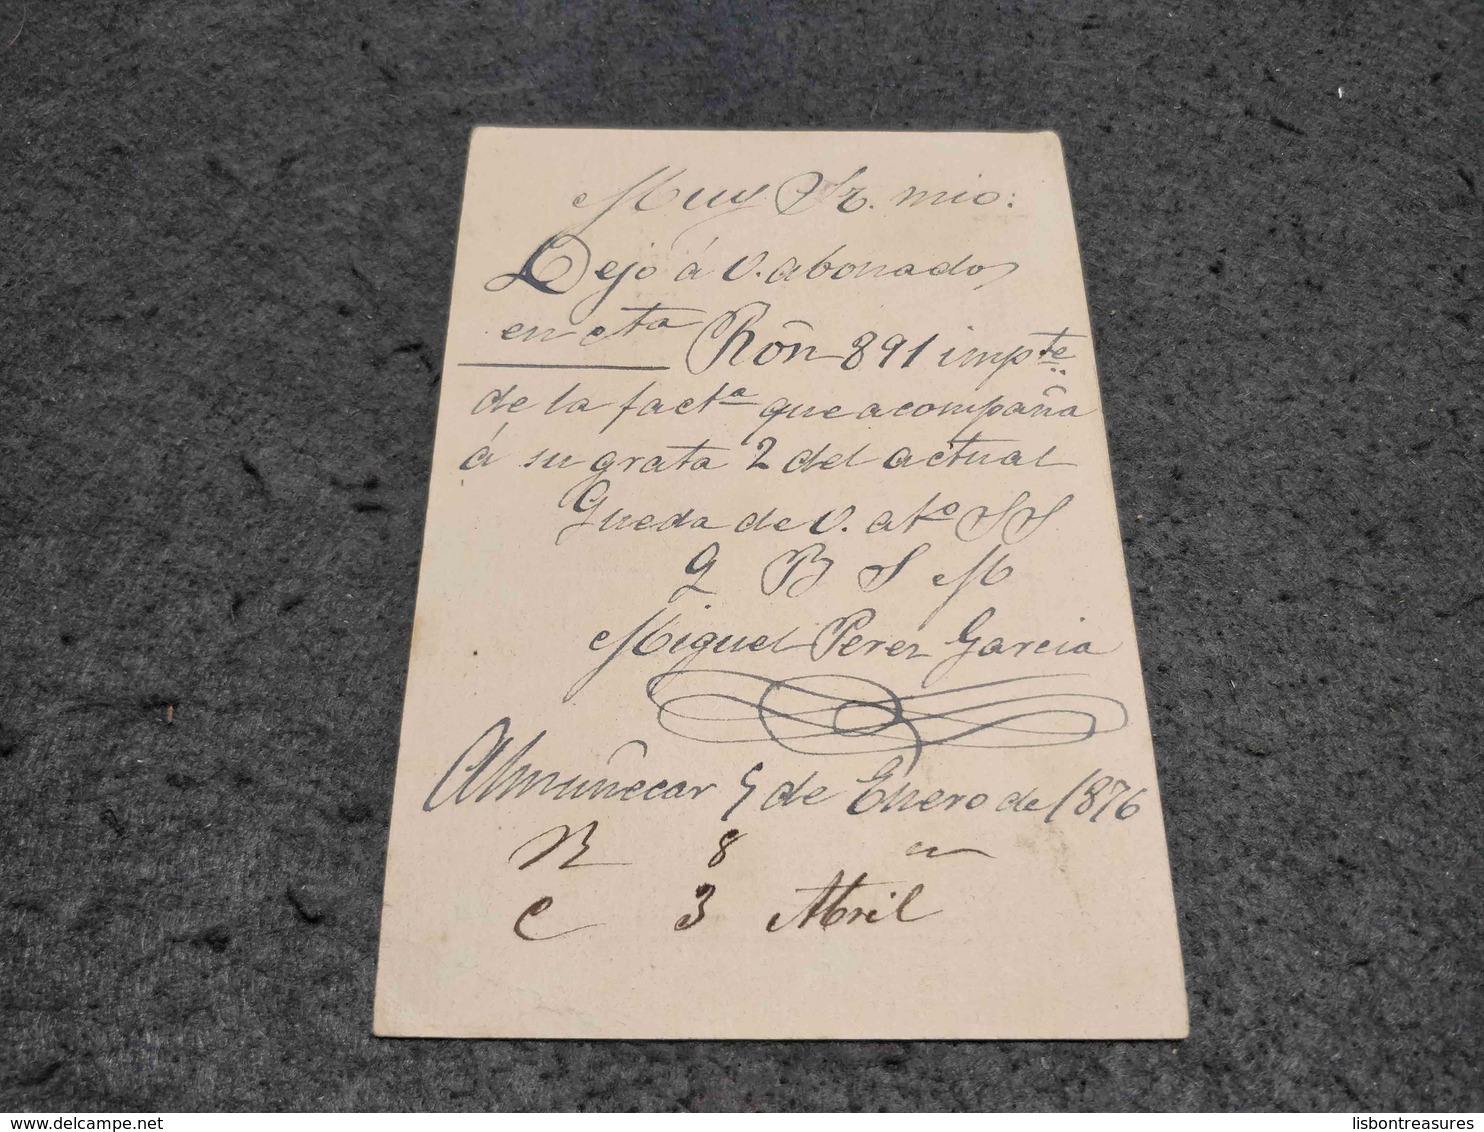 Muy Sr. mio:
Dejo á V. abonado
en cta Rón 891 impte
de la facta que acompaña
á su grata 2 del actual
Queda de V. ato SS
Q B S M
Miguel Perez Garcia
Almuñecar 5 de Enero de 1876
R 8 "
C 3 Abril
lisbontreasures